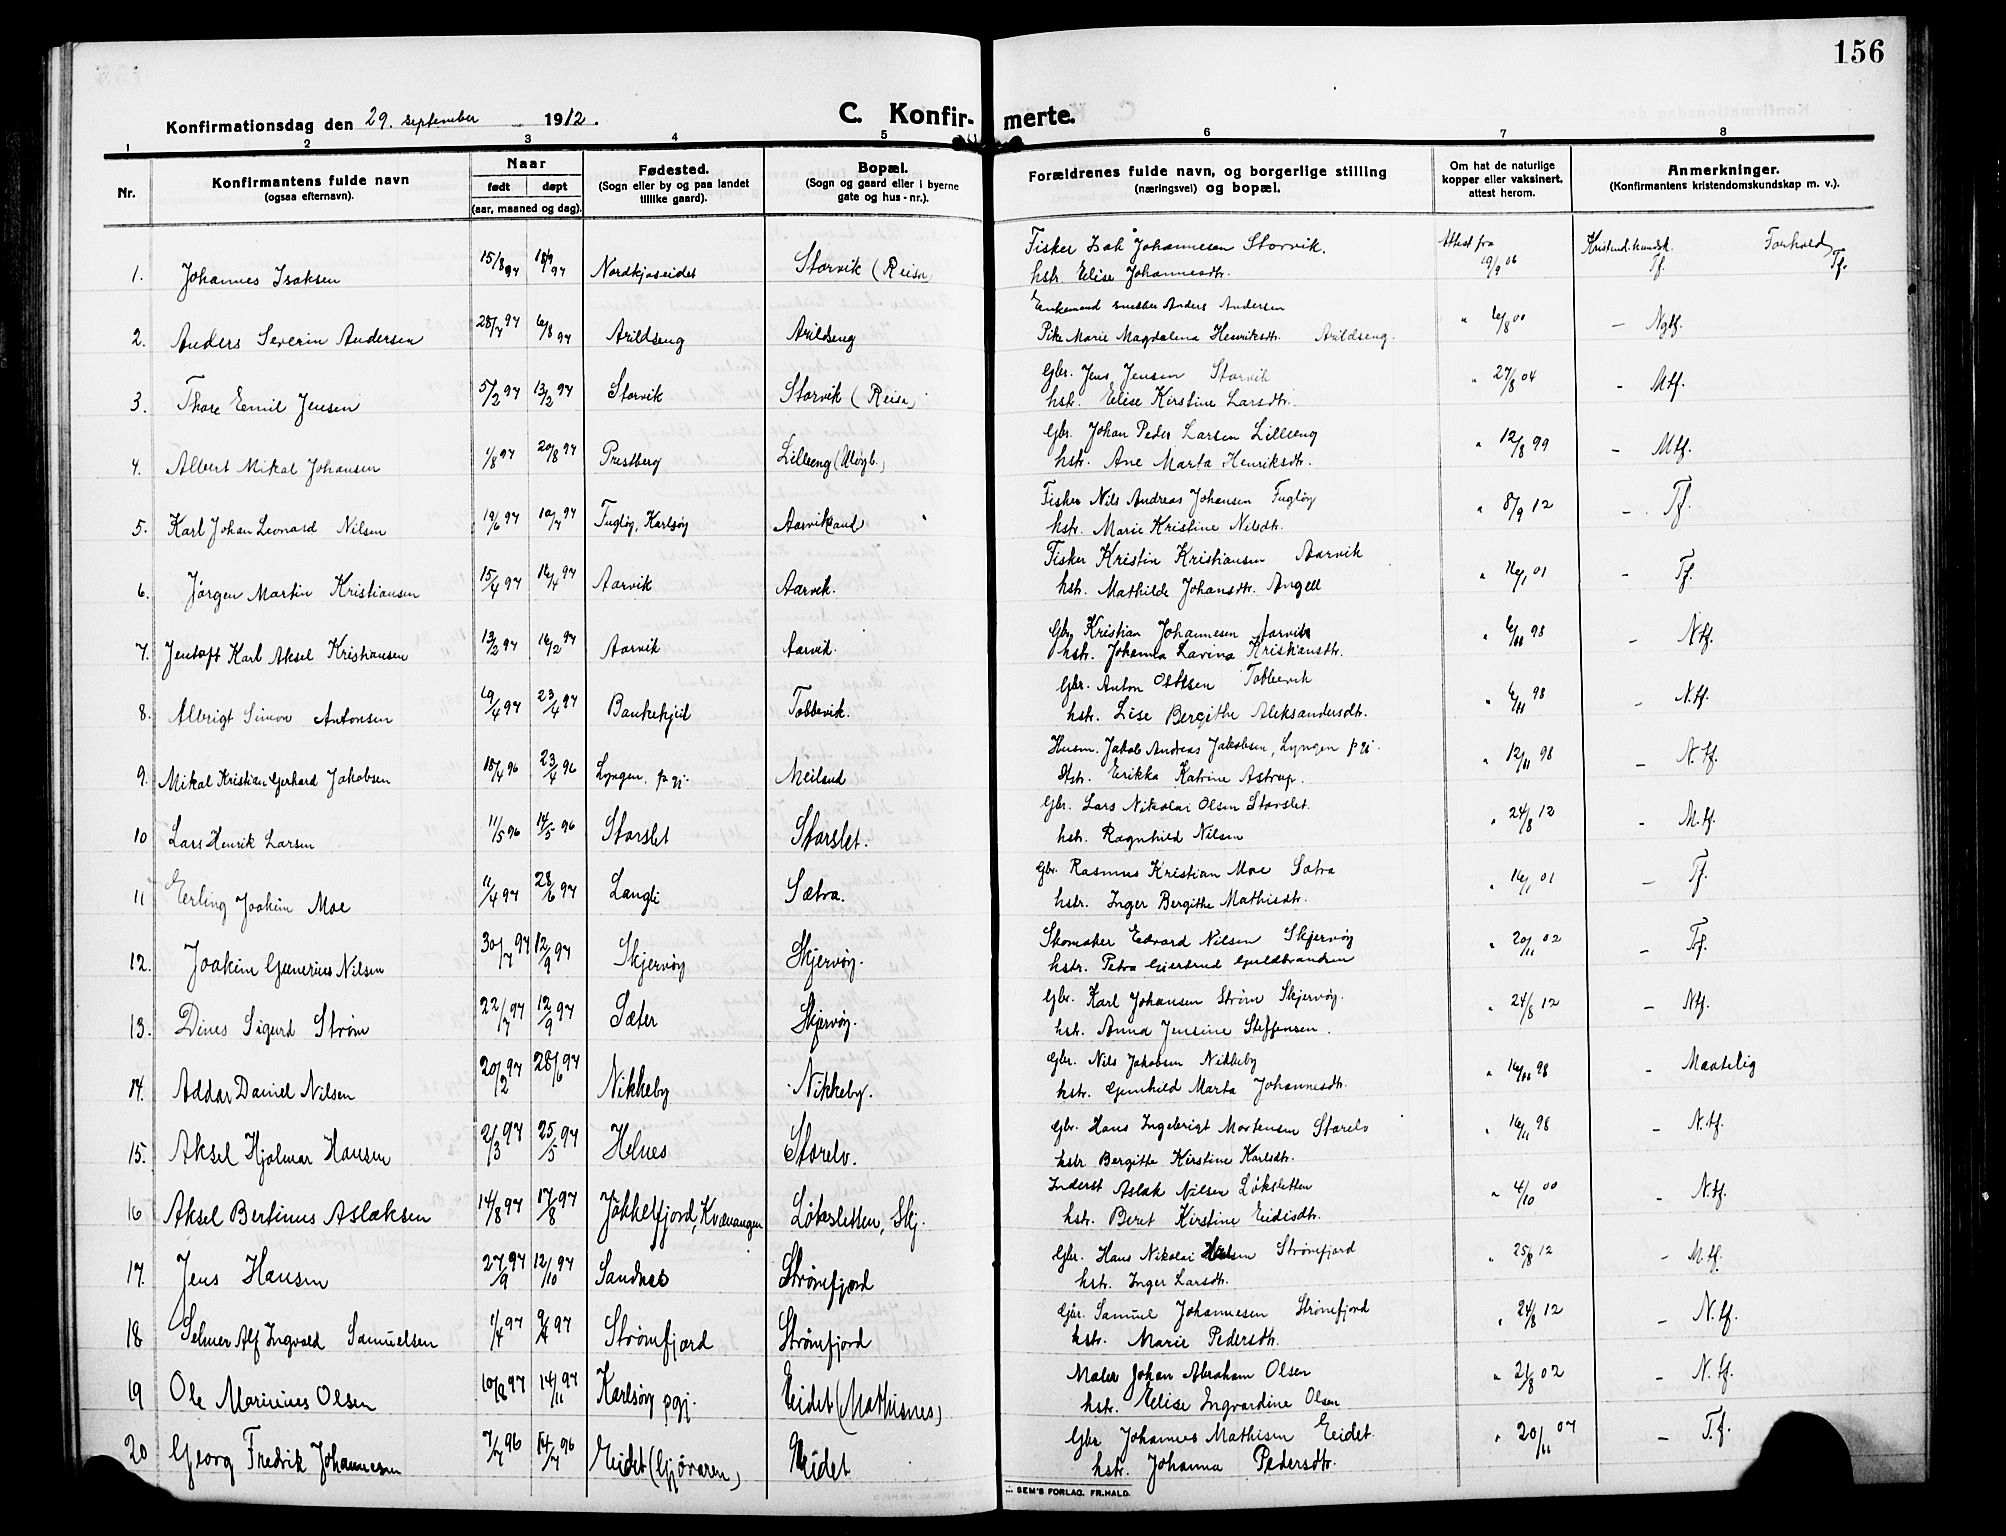 156
Konfirmationsdag den 29. september 1912.
C. Konfirmerte.
1 2 3 4 5 6 7 8
Nr.
Konfirmantens fulde navn
(ogsaa efternavn).
Naar
født døpt
(aar, maaned og dag).
Fødested.
(Sogn eller by og paa landet
tillike gaard).
Bopæl.
(Sogn og gaard eller i byerne
gate og hus-nr.).
Forældrenes fulde navn, og borgerlige stilling
(næringsvei) og bopæl.
Om hat de naturlige
kopper eller vaksinert,
attest herom.
Anmerkninger.
(Konfirmantens kristendomskundskap m. v.).
Fisker Isak Johannesen Storvik. Attest fra Kristend.kundsk. Forhold
1. Johannes Isaksen 15/8 97 Nordkjoseidet Storvik (Reisa) hstr. Elise Johannesdtr. 19/9 06 Tf. Tf.
Enkemand snekker Anders Andersen
2. Anders Severin Andersen 28/7 97 6/8 97 Arildseng Arildseng Pike Marie Magdalena Henriksdtr. Arildseng. " 6/8 00 – Ngtf.
Gbr. Jens Jensen Storvik
3. Thore Emil Jensen 5/2 97 13/2 97 Storvik Storvik (Reisa) hstr. Elise Kirstine Larsdtr. " 27/8 04 – Mtf.
Gbr. Johan Peder Larsen Lilleeng
4. Albert Mikal Johansen 1/8 97 20/8 97 Prestberg Lilleeng hstr. Ane Marta Henriksdtr. " 12/8 99 – Mtf.
Fisker Nils Andreas Johansen Fugløy
5. Karl Johan Leonard Nilsen 19/6 97 10/7 97 Fugløy, Karlsøy Aarviksand hstr. Marie Kristine Nilsdtr. " 8/9 12 – Tf.
Fisker Kristin Kristiansen Aarvik
6. Jørgen Martin Kristiansen 15/4 97 16/4 97 Aarvik Aarvik. hstr. Mathilde Johansdtr. Angell " 16/1 01 – Tf.
Gbr. Kristian Johannesen Aarvik
7. Jentoft Karl Aksel Kristiansen 13/2 97 16/2 97 Aarvik Aarvik. hstr. Johanna Lavina Kristiansdtr. " 6/11 98 – Ntf.
Gbr. Anton Ottesen Tobbevik
8. Albrigt Simon Antonsen 19/4 97 23/4 97 Bankekjeil Tobbevik. hstr. Lise Bergithe Aleksandersdtr. " 6/11 98 – N.tf.
Husm. Jakob Andreas Jakobsen, Lyngen pgj.
9. Mikal Kristian Gerhard Jakobsen 18/4 96 23/4 96 Lyngen pgj. Meiland Hstr. Erikka Katrine Astrup. " 12/11 98 – N.tf.
Gbr. Lars Nikolai Olsen Storslet.
10 Lars Henrik Larsen 11/5 96 14/5 96 Storslet Storslet. hstr. Ragnhild Nilsen " 24/8 12 – M.tf.
Gbr. Rasmus Kristian Moe Sætra
11 Erling Joakim Moe 11/4 97 28/6 97 Langli Sætra. hstr. Inger Bergithe Mathisdtr. " 16/1 01 – Tf.
Skomaker Edvard Nilsen Skjervøy
12. Joakim Nilsen 30/7 97 12/9 97 Skjervøy Skjervøy. hstr. Petra Gjertrud Guldbrandsen " 20/11 02 – Tf.
Gbr. Karl Johansen Strøm Skjervøy.
13. Dines Sigurd Strøm 22/7 97 12/9 97 Sæter Skjervøy. hstr. Anna Jensine Steffensen. " 24/8 12 – Ntf.
Gbr. Nils Jakobsen Nikkeby
14. Addar Daniel Nilsen 20/2 97 28/6 97 Nikkeby Nikkeby. hstr. Gunhild Marta Johannesdtr. " 16/11 98 – Maatelig
Gbr. Hans Ingebrigt Mortensen Storelv
15. Aksel Hjalmar Hansen 2/3 97 25/5 97 Helnes Storelv. hstr. Bergitte Kirstine Karlsdtr. " 16/11 98 – N.tf.
Inderst Aslak Nilsen Løksletten
16 Aksel Bertinus Aslaksen 14/8 97 17/8 97 Jøkkelfjord, Kvænangen Løksletten, Skj. hstr. Beret Kirstine Eidisdtr. " 4/10 00 – N.tf.
Gbr. Hans Nikolai Strømfjord
17. Jens Hansen 27/9 97 12/10 97 Sandnes Strømfjord hstr. Inger Larsdtr. " 25/8 12 – M.tf.
Gbr. Samuel Johannesen Strømfjord
18 Selmer Alf Ingvald Samuelsen 1/4 97 9/4 97 Strømfjord Strømfjord hstr. Marie Pedersdtr. " 24/8 12 – N.tf.
Maler Johan Abraham Olsen
19 Ole Marinius Olsen 97 14/11 97 Karlsøy pgj. Eidet (Mathisnes) hstr. Elise Ingvardine Olsen " 21/8 02 – N.tf.
Gbr. Johannes Mathisen Eidet.
20 Georg Fredrik Johannesen 7/7 96 14/7 96 Eidet (Gjøvaren) Eidet hstr. Johanna Pedersdtr. " 20/11 07 – T.f.
SEM'S FORLAG. FR.HALD.